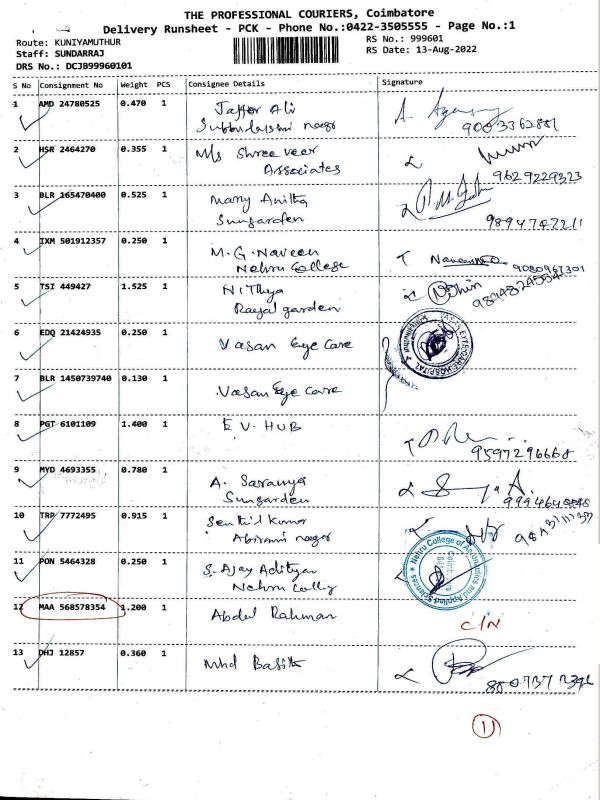 THE PROFESSIONAL COURIERS, Coimbatore
Delivery Runsheet - PCK - Phone No.:0422-3505555 - Page No.:1
Route: KUNIYAMUTHUR
Staff: SUNDARRAJ
DRS No.: DCJB99960101
RS No.: 999601
RS Date: 13-Aug-2022
S No Consignment No Weight PCS Consignee Details Signature
1 AMD 24780525 0.470 1 Jaffer Ali
nagar
9003362881
2 HSR 2464270 0.355 1 M/s Shree veer
Associates
9629229323
3 BLR 165470400 0.525 1 Mary Anitha
Sungarden
9894742211
4 IXM 501912357 0.250 1 M.G. Naveen
Nehru College
9080967301
5 TSI 449427 1.525 1 Nithya
Royal garden
6 EDQ 21424935 0.250 1 Vasan Eye Care
7 BLR 1450739740 0.130 1 Vasan Eye Care
8 PGT 6101109 1.400 1 E.V. HUB
9597296668
9 MYD 4693355 0.780 1 A. Saranya
Sungarden
10 TRP 7772495 0.915 1 Senthil Kumar
Abirami nagar
11 PON 5464328 0.250 1 S. Ajay Adityan
Nehru
Nehru College of Aeronautics and Applied Sciences
12 MAA 568578354 1.200 1 Abdul Rahman
C/N
13 DHJ 12857 0.360 1 Mhd
1